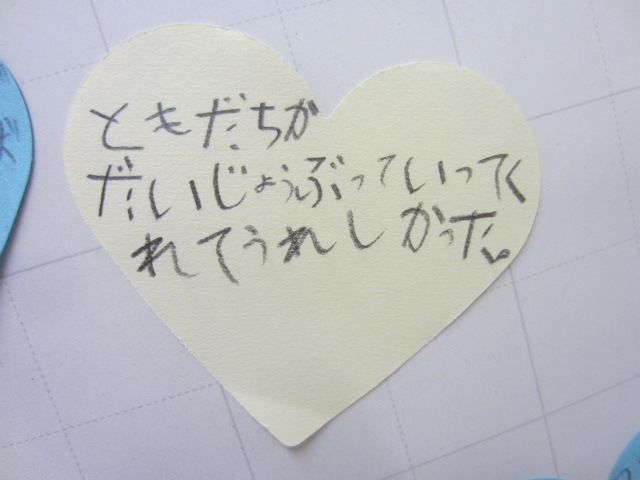 ともだちが
だいじょうぶっていってく
れてうれしかった。